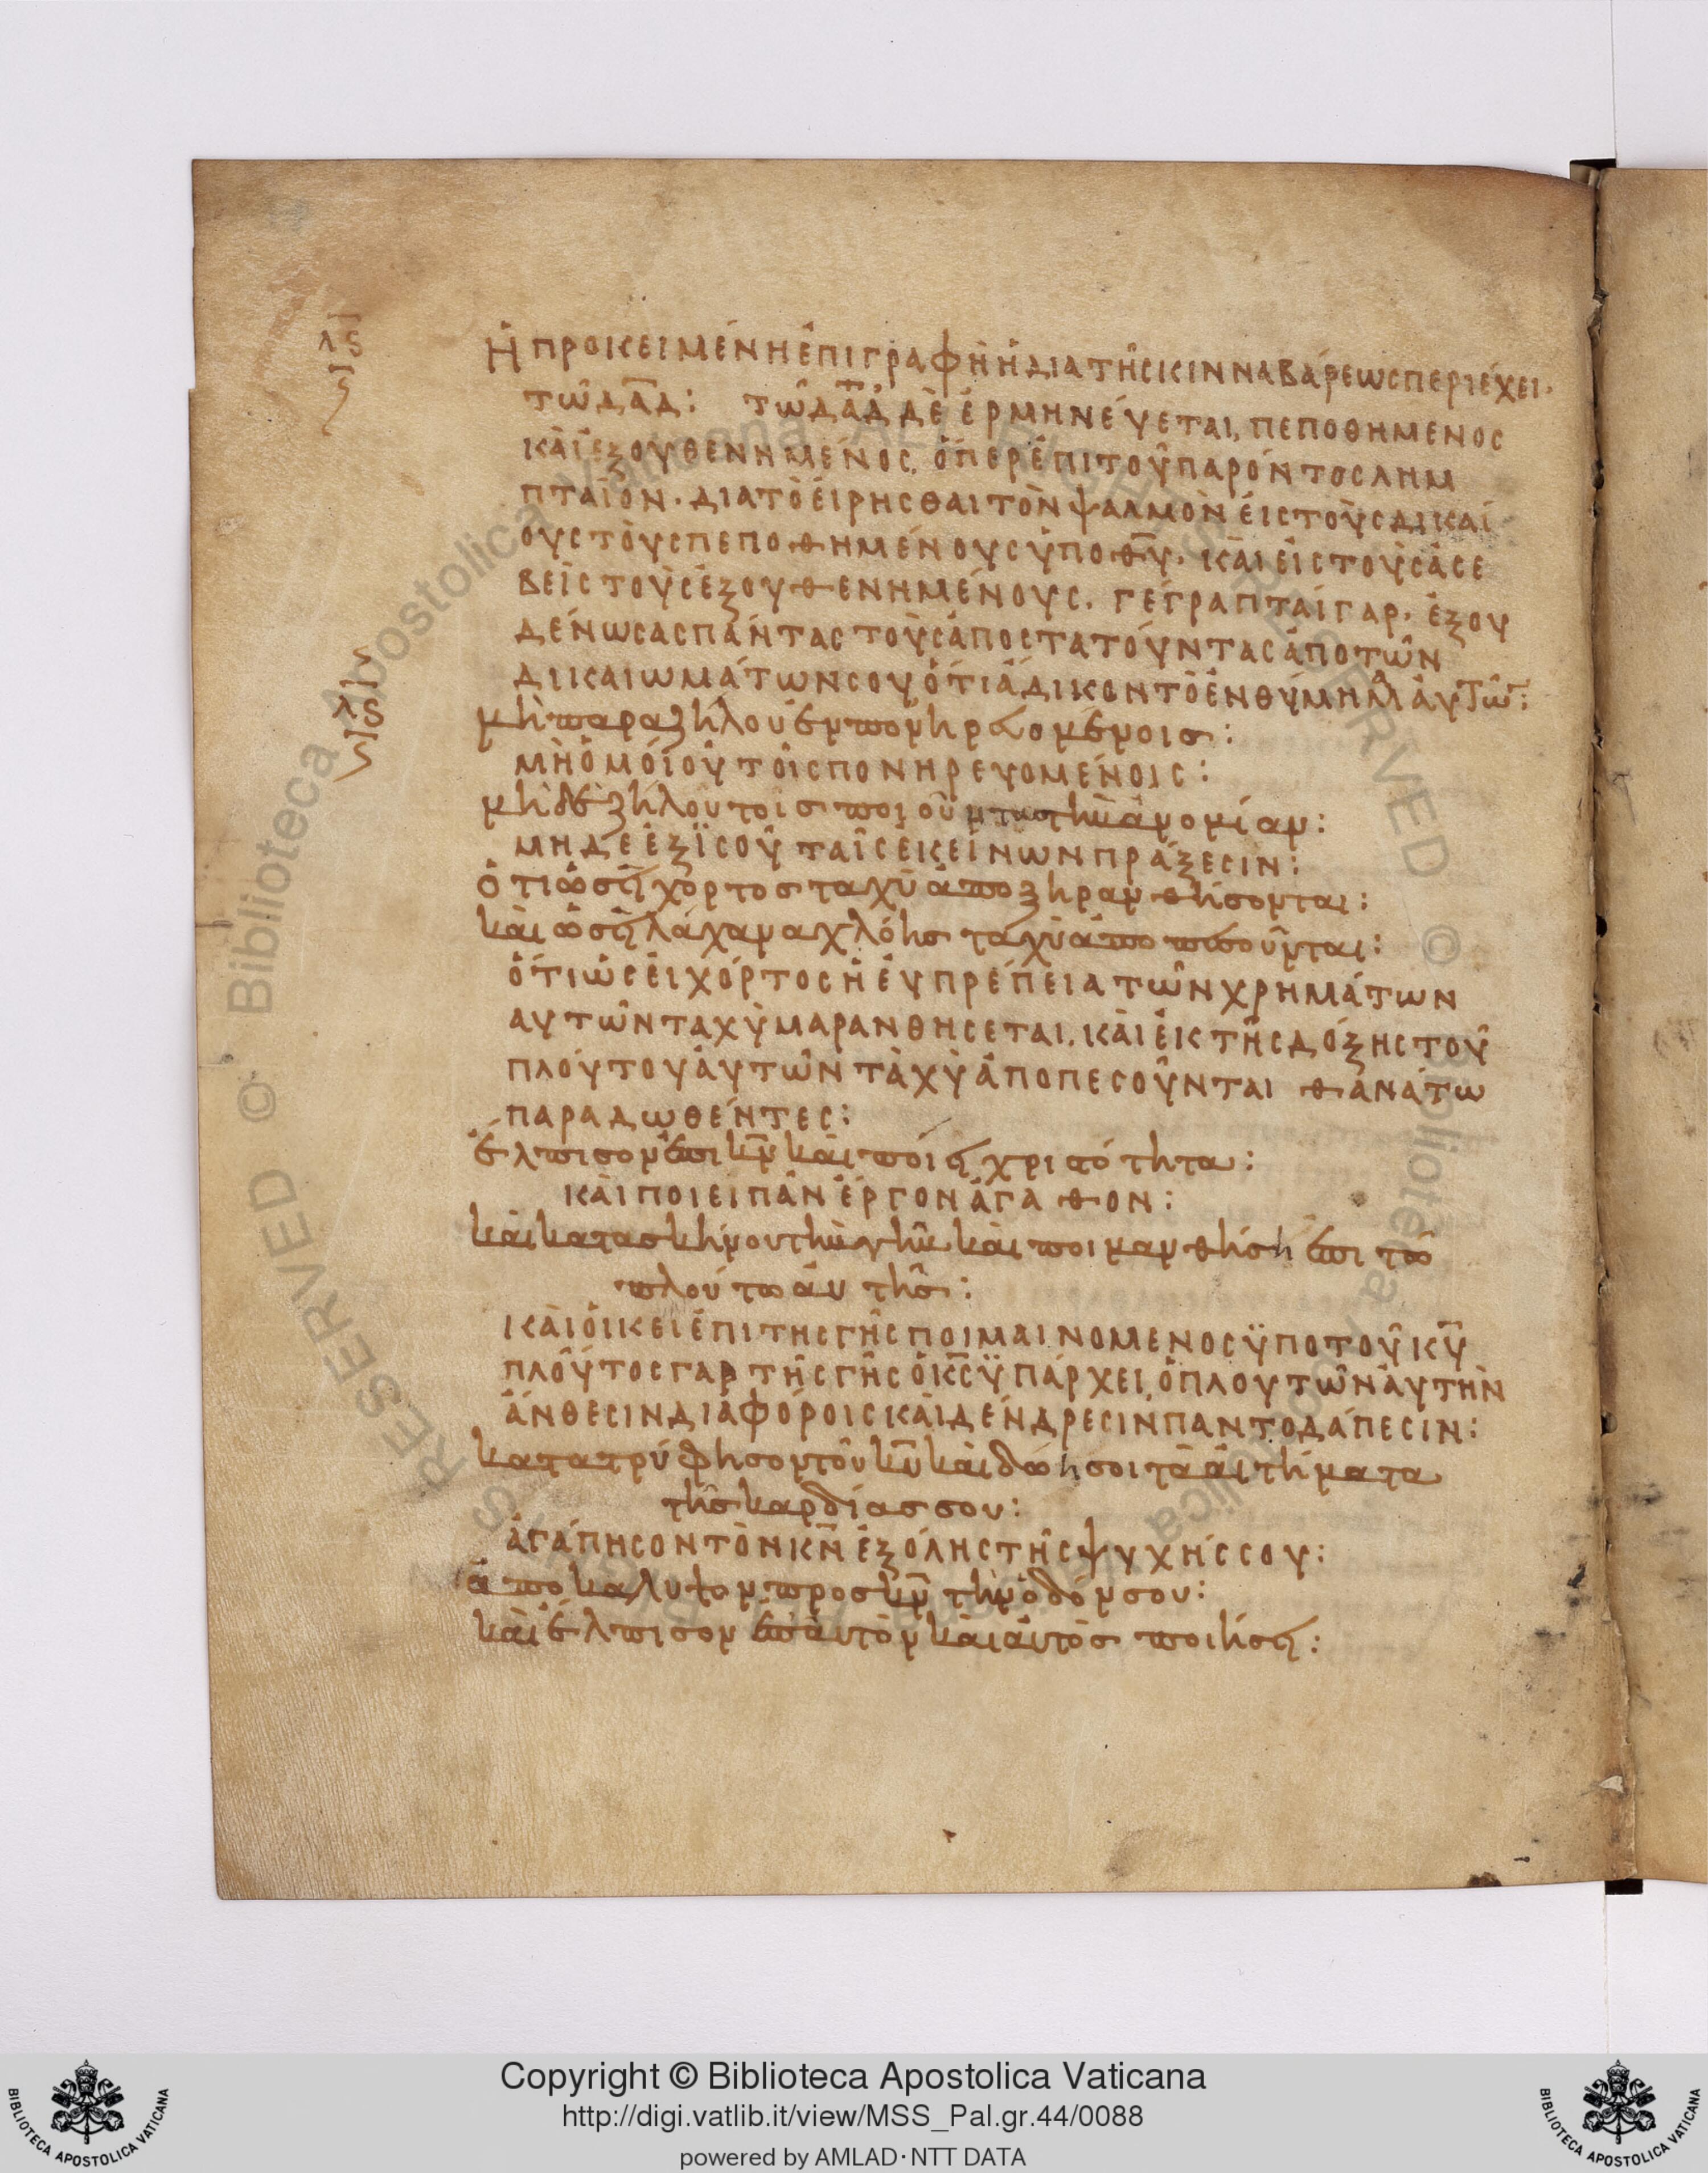 λϛ
Ἡ προκειμένη ἐπιγραφὴ ἡ διὰ τῆς κινναβάρεως περιέχει·
τῶ δᾱδ: τῶ δᾱδ δὲ ἑρμηνεύεται, πεποθημενος
καὶ ἐξουθενημένος, ὅπερ ἐπὶ τοῦ παρόντος λημ
πταῖον· διὰ τὸ εἰρησθαι τὸν ψαλμὸν εἰς τοὺς δικαί
ους τοὺς πεποθημένους ὑπο θ̄ῡ, καὶ εἰς τοὺς ἀσε
βεῖς τοὺς ἐξουθενημένους. γέγραπταί γαρ, ἐξου
δένωσας πάντας τοὺς ἀποστατούντας ἀπὸ τῶν
δικαιωμάτων σου ὅτι ἄδικον τὸ ἐνθύμημα ἀυτῶν:
λϛ
μὴ παραζήλου ἐν πονηρευομένοις:
μὴ ὁμοιοῦ τοῖς πονηρευομένοις:
μὴ δὲ ζήλου τοὶς ποιοῦντας τὴν ἀνομίαν:
μηδὲ ἐξϊσοῦ ταῖς ἐκείνων πράξεσιν:
ὅτι ὡσεὶ χόρτος ταχὺ ἀποξηρανθήσονται:
καὶ ὡσεὶ λάχανα χλόης ταχὺ ἀποπεσοῦνται:
ὅτι ὡσεὶ χόρτος ἡ ἐυπρέπεια τῶν χρημάτων
αυτῶν ταχὺ μαρανθησεται. καὶ ἐκ τῆς δόξης τοῦ
πλούτου ἀυτῶν ταχὺ ἀποπεσοῦνται θανάτω
παραδωθέντες:
ἔλπισον ἐπὶ κ̄ν̄ καὶ ποίει χριστότητα:
καὶ ποίει πᾶν ἔργον ἀγαθον:
καὶ κατασκήνου τὴν γῆν καὶ ποιμανθήση ἐπὶ τῶ
πλούτω ἀυτῆς:
καὶ ὀίκει ἐπὶ της γῆς ποιμαινομενος ϋπο τοῦ κ̄ῡ
πλοῦτος γαρ τῆς γῆς ὁ κ̄ς̄ ϋπάρχει, ὁ πλουτῶν ἀυτὴν
ἄνθεσιν διαφόροις καὶ δένδρεσιν παντοδάπεσιν:
κατατρύφησον τοῦ κ̄ῡ καὶ δώη σοι τὰ ἀιτήματα
τῆς καρδίας σου:
ἀγάπησον τὸν κ̄ν̄ ἐξ ὅλης τῆς ψυχής σου:
ἀποκαλυψον προς κ̄ν̄ τὴν ὁδόν σου:
καὶ ἔλπισον ἐπ' ἀυτὸν καὶ ἀυτὸς ποιήσει:
Copyright © Biblioteca Apostolica Vaticana
http://digi.vatlib.it/view/MSS_Pal.gr.44/0088
powered by AMLAD·NTT DATA
BIBLIOTECA APOSTOLICA VATICANA
BIBLIOTECA APOSTOLICA VATICANA